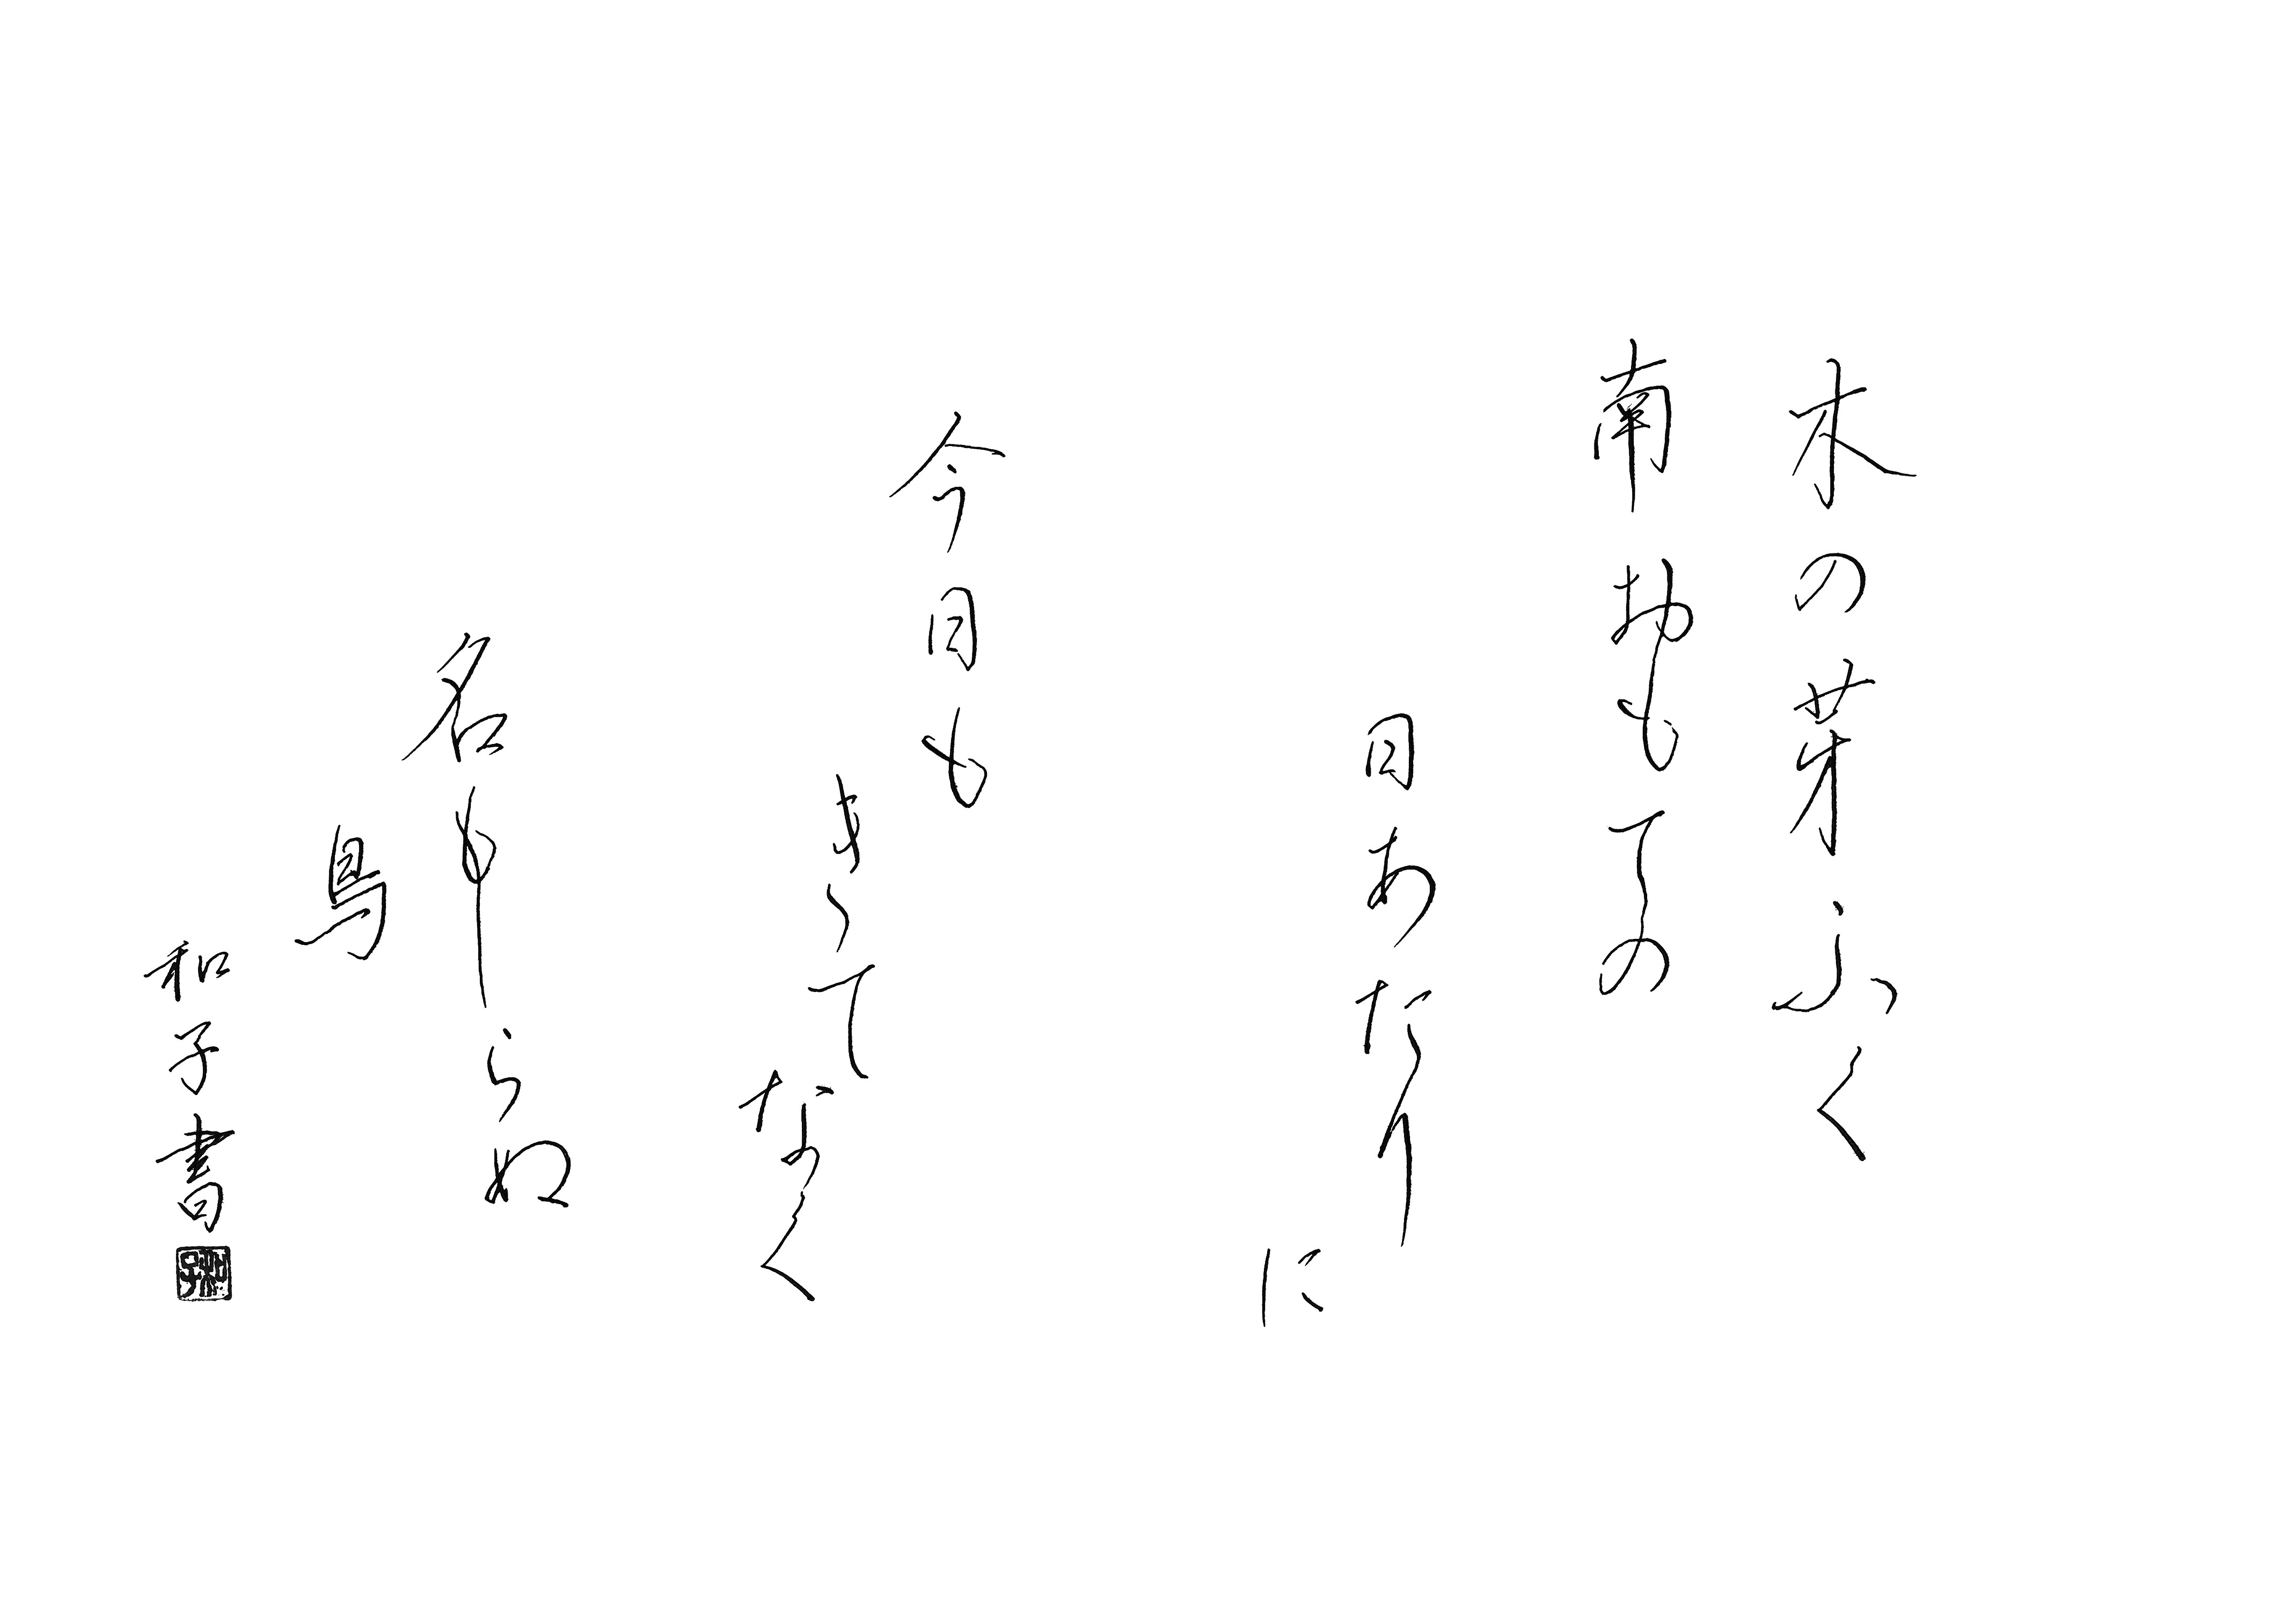 木の芽ふく
南おもての
日あたり
に
今日も
きてなく
名もしらぬ
鳥
和子書